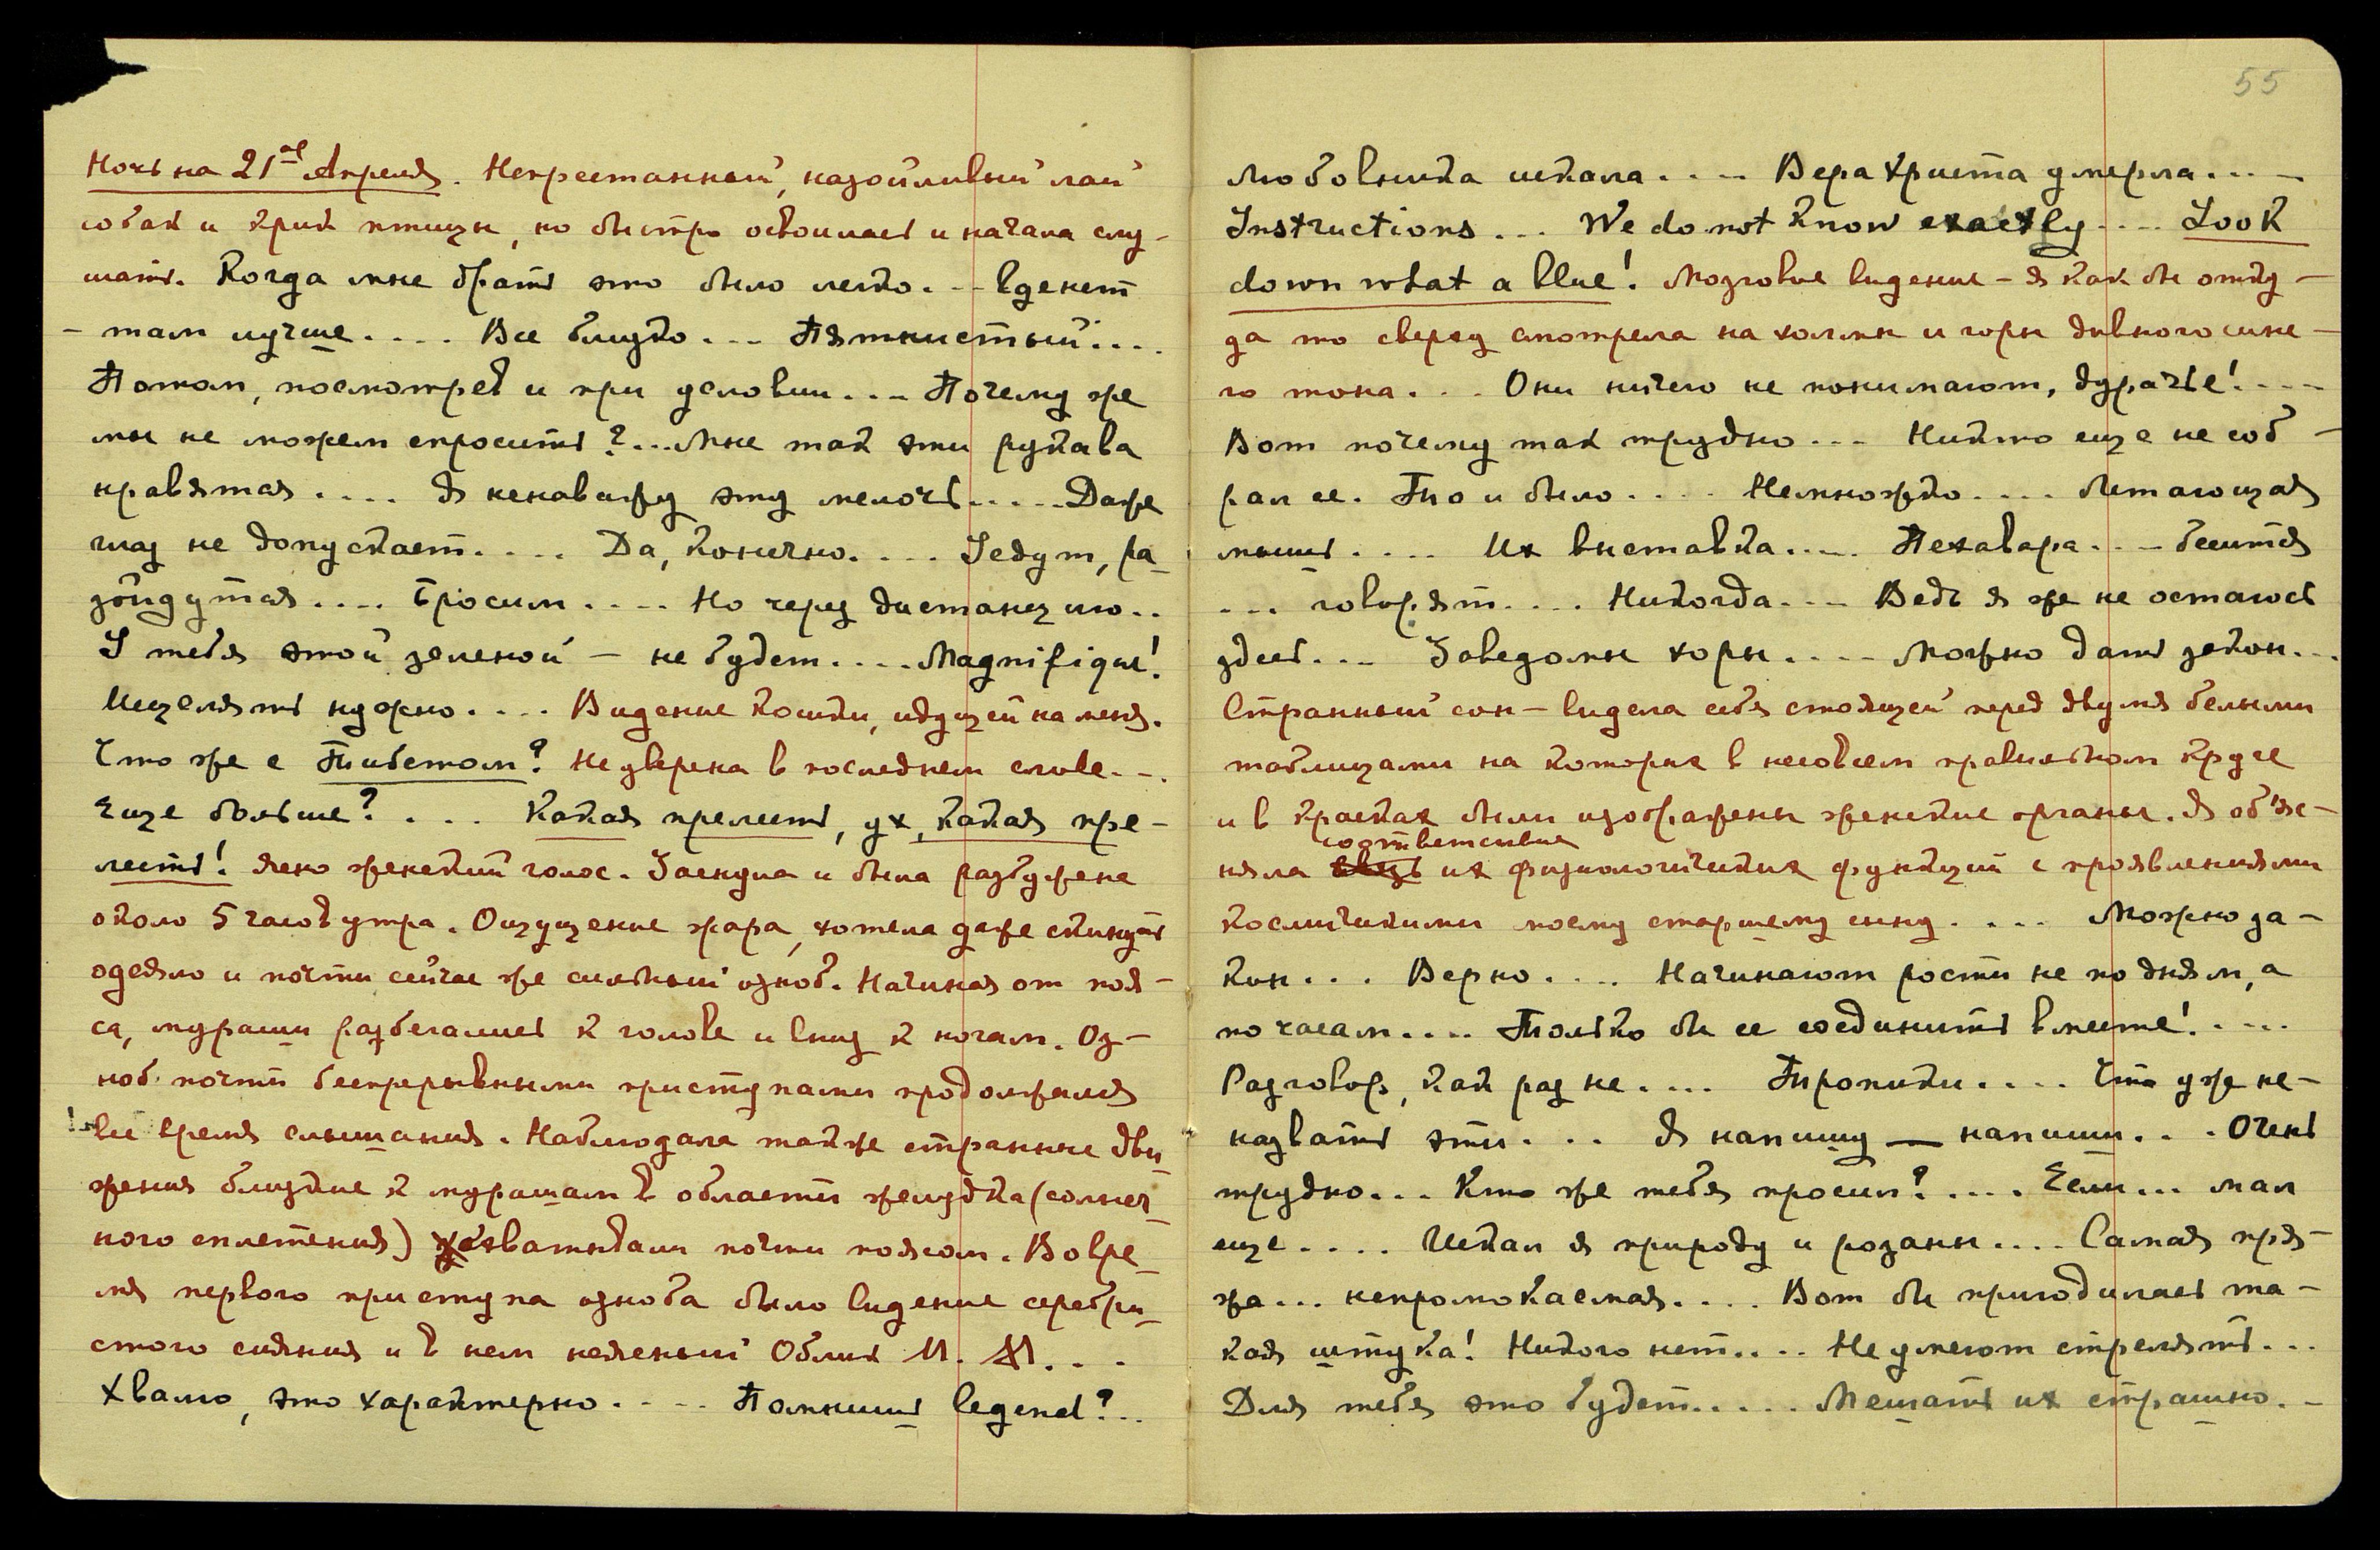 55
Ночь на 21ое Апреля. Непрестанный, назойливый лай
собак и крик птицы, но быстро освоилась и начала слу-
шать. Когда мне брать это было легко... вденет
- там лучше.... Все близко... Пятнистый....
Потом, посмотрев и при условии... Почему же
мы не можем спросить?... Мне так эти рукава
нравятся.... Я ненавижу эту мелочь..... Даже
глаз не допускает.... Да, конечно.... Iедут, ра-
зойдутся.... Бросим.... Но через дистанцию..
У тебя этой зеленой — не будет.... Magnifique!
Исцелять нужно.... Видение кошки, идущей на меня.
Что же с Тибетом? Не уверена в последнем слове...
Еще больше?... Какая прелесть, ух, какая пре-
лесть! Ясно женский голос. Заснула и была разбужена
около 5 часов утра. Ощущение жара, хотела даже скинуть
одеяло и почти сейчас же сильный озноб. Начиная от поя-
са, мураши разбегались к голове и вниз к ногам. Оз-
ноб почти беспрерывными приступами продолжался
все время слышания. Наблюдала также странные дви-
жения близкие к мурашам в области желудка (солнеч-
ного сплетения) захватывали почти поясом. Во вре-
мя первого приступа озноба было видение серебри-
стого сияния и в нем неясный Облик М. М...
Хвалю, это характерно.... Помнишь legend?..
Любовника искала.... Вера Христа умерла....
Instructions... We do not know exactly.... Look
down what a blue! Мозговое видение — я как бы отку-
да то сверху смотрела на холмы и горы дивного сине-
го тона... Они ничего не понимают, дурачье!....
Вот почему так трудно... Никто еще не соб-
рал ее. То и было.... Немножко.... Летающая
мышь.... Их выставка.... Пехавара.... боится
... говорят.... Никогда.... Ведь я же не остаюсь
здесь.... Заведомы хоры.... Можно дать закон...
Странный сон — видела себя стоящей перед двумя белыми
таблицами на которых в несовсем правильном круге
и в красках были изображены женские органы. Я объяс-
соответствие
няла их физиологических функций с проявлениями
космическими моему старшему сыну.... Можно за-
кон... Верно.... Начинают рости не по дням, а
по часам.... Только бы ее соединить вместе!....
Разговор, как раз не.... Тропики.... Что уже не-
назвать эти... Я напишу — напиши... Очень
трудно... Кто же тебя просил?.... Если... мал
еще.... Искал я природу и розаны.... Самая пря-
жа... непромокаемая.... Вот бы пригодилась та-
кая штука! Никого нет.... Не умеют стрелять...
Для тебя это будет..... Мешать их страшно..